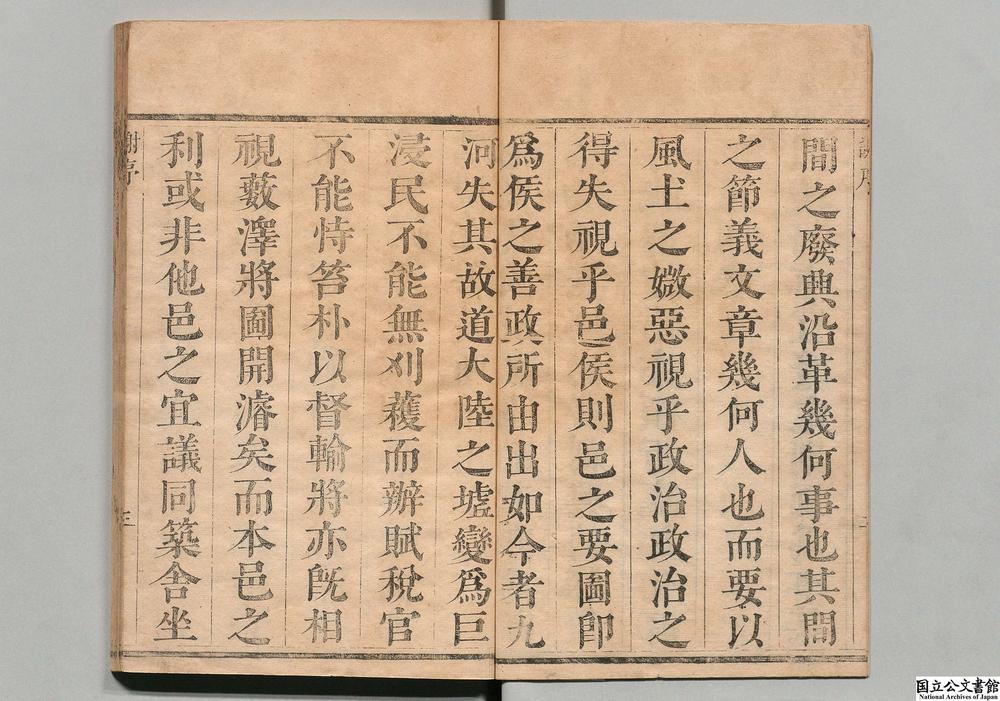 間之廢興沿革幾何事也其間
之節義文章幾何人也而要以
風土之媺惡視乎政治政治之
得失視乎邑侯則邑之要圖卽
爲侯之善政所由出如今者九
河失其故道大陸之墟變爲巨
浸民不能無刈穫而辦賦稅官
不能恃笞朴以督輸將亦旣相
視藪澤將圖開濬矣而本邑之
利或非他邑之宜議同築舍坐
謝序
三
国立公文書館
National Archives of Japan